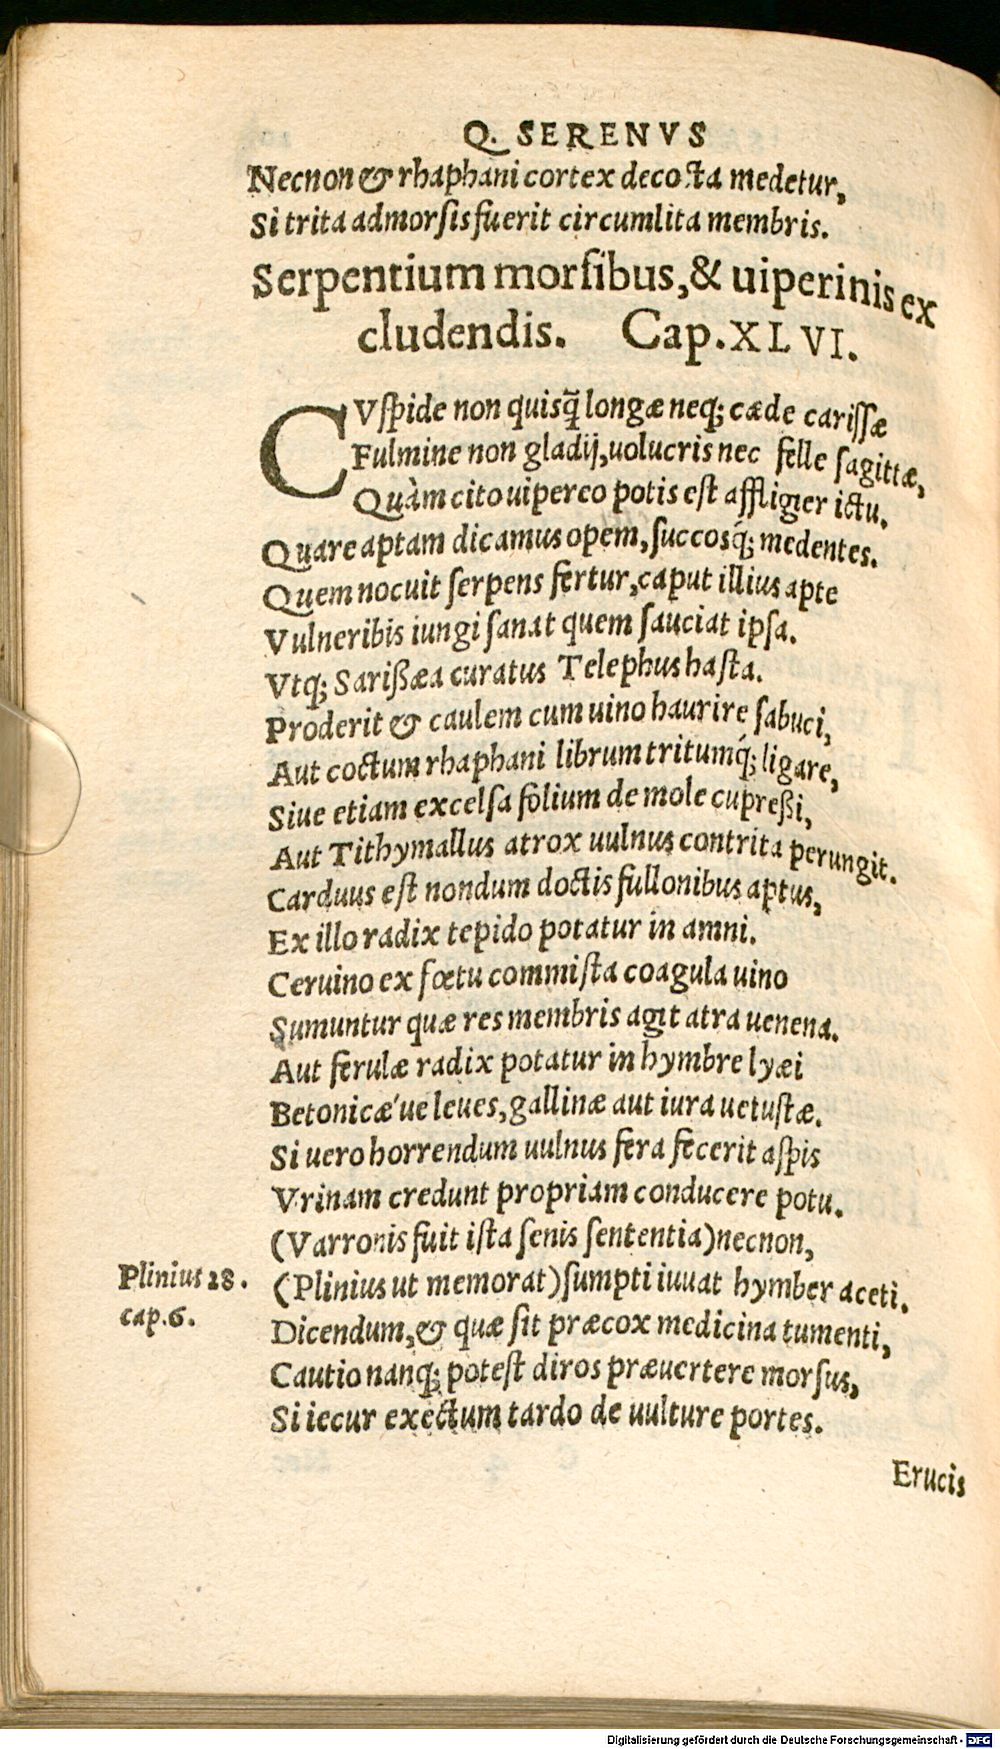 Q. SERENVS
Necnon & rhaphani cortex decocta medetur,
Si trita admorsis fuerit circumlita membris.
Serpentium morsibus, & uiperinis ex
cludendis. Cap. XLVI.
CVspide non quisq̃ longæ neq; cæde carissæ
Fulmine non gladij, uolucris nec felle sagittæ,
Quàm cito uipereo potis est affligier ictu.
Quare aptam dicamus opem, succosq́; medentes.
Quem nocuit serpens fertur, caput illius apte
Vulneribis iungi sanat quem sauciat ipsa.
Vtq; Sarißæa curatus Telephus hasta.
Proderit & caulem cum uino haurire sabuci,
Aut coctum rhaphani librum tritumq́; ligare,
Siue etiam excelsa folium de mole cupreßi,
Aut Tithymallus atrox uulnus contrita perungit.
Carduus est nondum doctis fullonibus aptus,
Ex illo radix tepido potatur in amni.
Ceruino ex fœtu commista coagula uino
Sumuntur quæ res membris agit atra uenena.
Aut ferulæ radix potatur in hymbre lyæi
Betonicæ'ue leues, gallinæ aut iura uetustæ.
Si uero horrendum uulnus fera fecerit aspis
Vrinam credunt propriam conducere potu.
(Varronis fuit ista senis sententia) necnon,
Plinius 28. (Plinius ut memorat) sumpti iuuat hymber aceti.
cap.6. Dicendum, & quæ sit præcox medicina tumenti,
Cautio nanq; potest diros præuertere morsus,
Si iecur exectum tardo de uulture portes.
Erucis
Digitalisierung gefördert durch die Deutsche Forschungsgemeinschaft - DFG